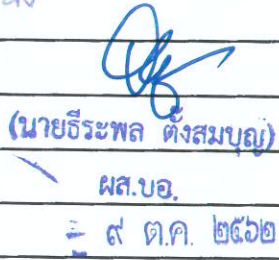 (นายธีระพล ตั้งสมบุญ)
ผส.บอ.
๙ ต.ค. ๒๕๖๒